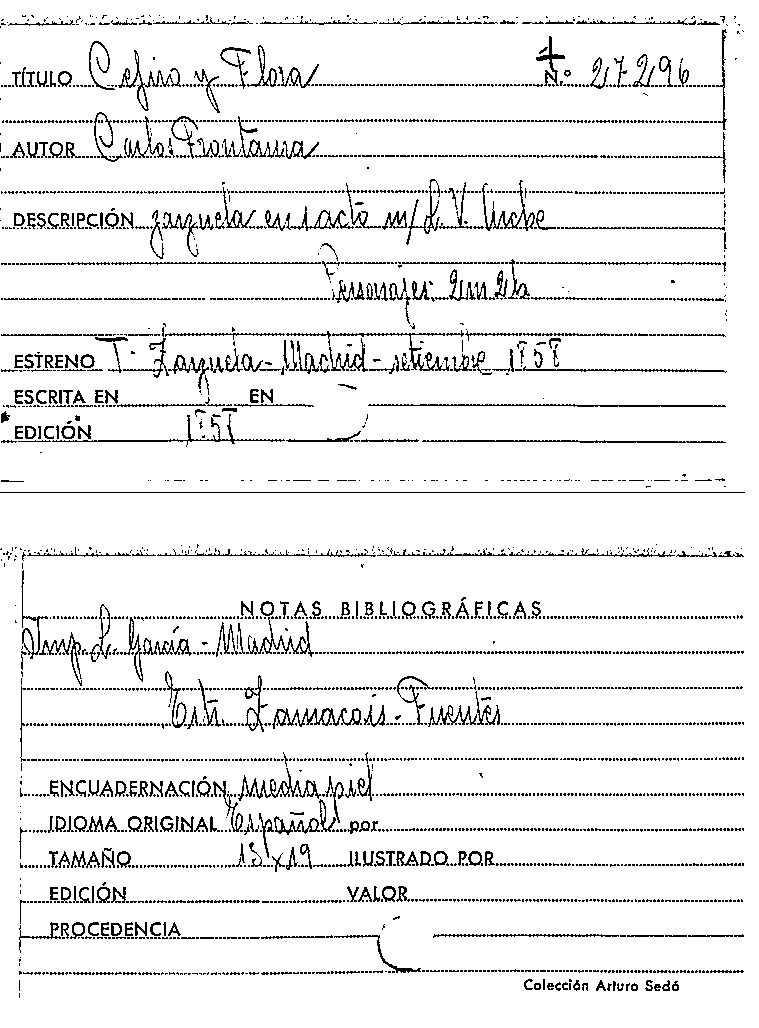 TÍTULO Cefiro y Flora
N.º 27296
AUTOR Carlos Frontaura
DESCRIPCIÓN zarzuela en 1 acto m/ L. V. Arche
Personajes: 2m 2h
ESTRENO T. Zarzuela - Madrid - setiembre 1858
ESCRITA EN EN
EDICIÓN 1858
NOTAS BIBLIOGRÁFICAS
Imp. L. García - Madrid
Estr. Zamacois - Fuentes
ENCUADERNACIÓN media piel
IDIOMA ORIGINAL Español por
TAMAÑO 13x19 ILUSTRADO POR
EDICIÓN VALOR
PROCEDENCIA
Colección Arturo Sedó